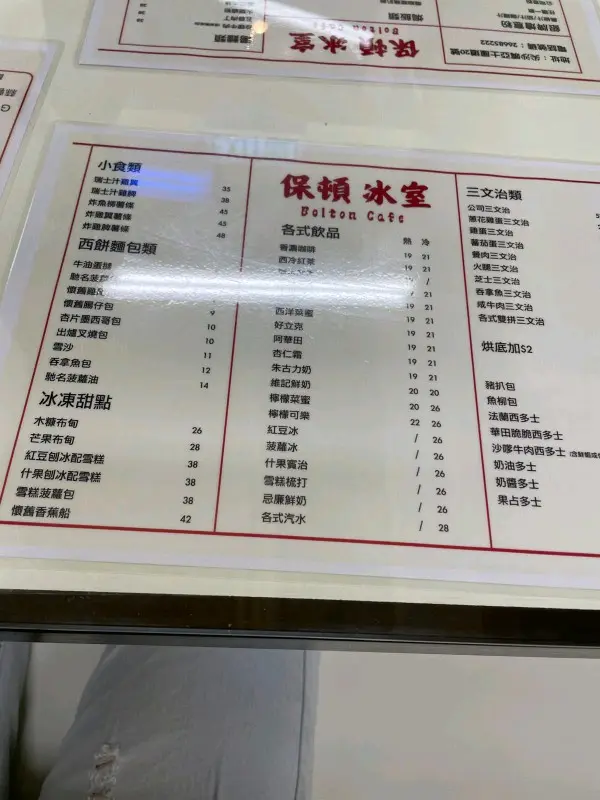 保頓冰室
Bolton Cafe
地址：尖沙嘴亞士厘道20號
電話號碼：26685222
小食類
瑞士汁雞翼
瑞士汁雞髀 35
炸魚柳薯條 38
炸雞翼薯條 45
炸雞髀薯條 45
48
西餅麵包類
牛油蛋撻
馳名菠蘿
懷舊雞
懷舊腸仔包 9
杏片墨西哥包 10
出爐叉燒包 10
雪沙 11
吞拿魚包 12
馳名菠蘿油 14
冰凍甜點
木糠布甸 26
芒果布甸 28
紅豆刨冰配雪糕 38
什果刨冰配雪糕 38
雪糕菠蘿包 38
懷舊香蕉船 42
保頓冰室
Bolton Cafe
各式飲品 熱 冷
香濃咖啡 19 21
西冷紅茶 19 21
/
19 21
西洋菜蜜 19 21
好立克 19 21
阿華田 19 21
杏仁霜 19 21
朱古力奶 19 21
維記鮮奶 20 20
檸檬菜蜜 20 26
檸檬可樂 22 26
紅豆冰 / 26
菠蘿冰 / 26
什果賓治 / 26
雪糕梳打 / 26
忌廉鮮奶 / 26
各式汽水 / 28
三文治類
公司三文治
蔥花雞蛋三文治
雞蛋三文治
蕃茄蛋三文治
餐肉三文治
火腿三文治
芝士三文治
吞拿魚三文治
咸牛肉三文治
各式雙拼三文治
烘底加$2
豬扒包
魚柳包
法蘭西多士
華田脆脆西多士
沙嗲牛肉西多士
奶油多士
奶醬多士
果占多士